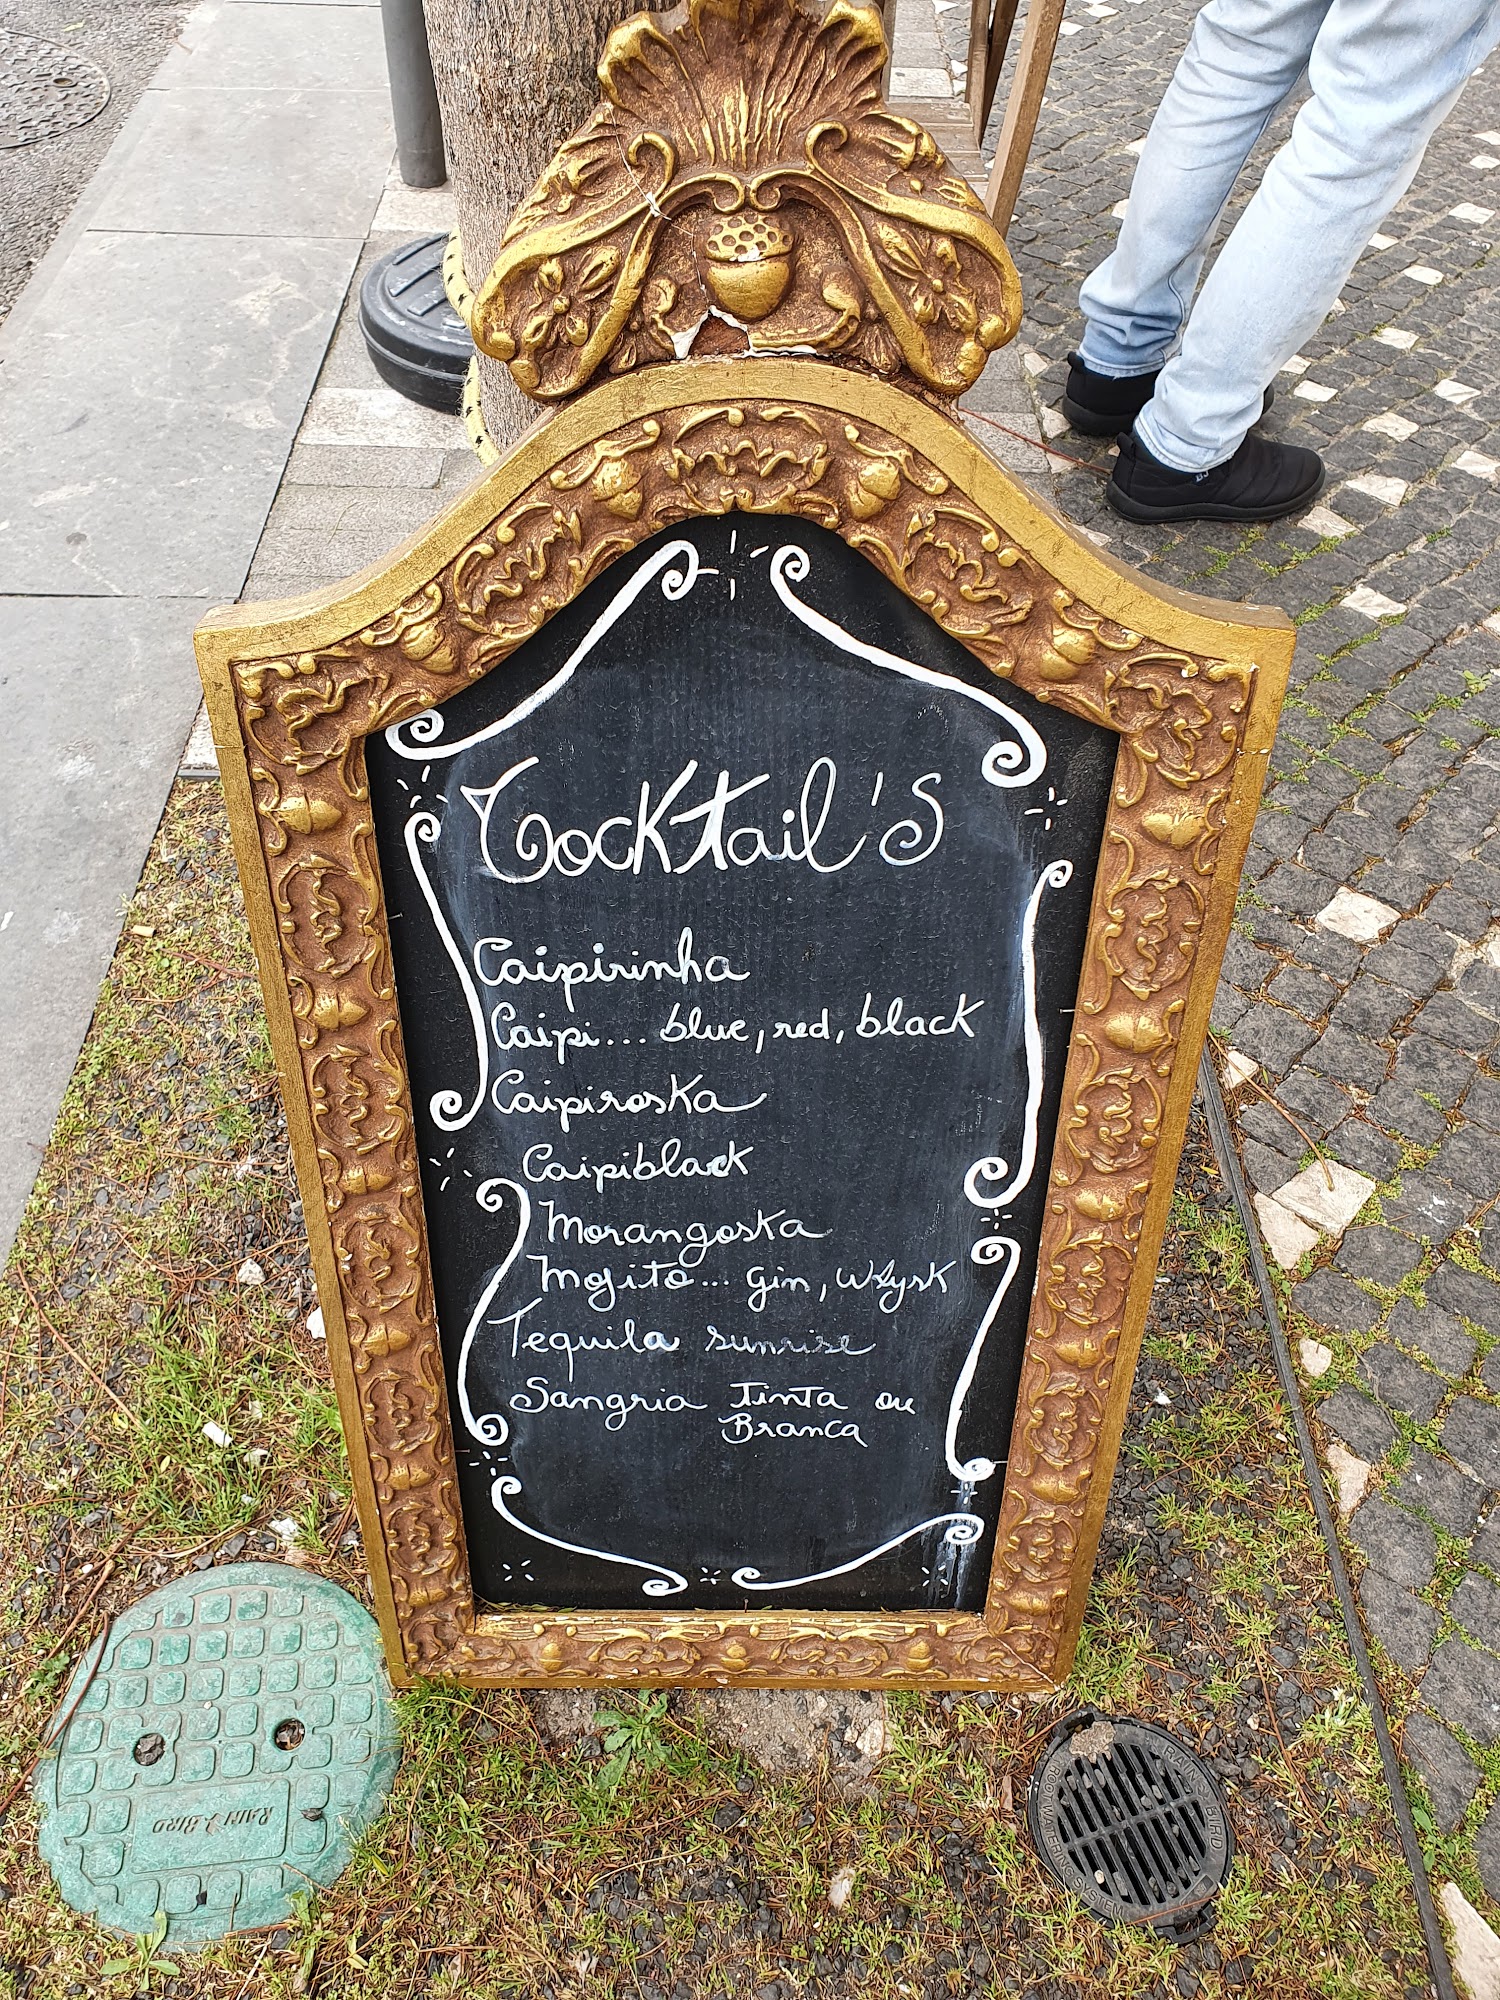 Cocktail's
Caipirinha
Caipi... blue, red, black
Caipiroska
Caipiblack
Morangoska
Mojito... gin, wysk
Tequila sunrise
Sangria Tinta ou
Branca
RAIN BIRD
RAIN BIRD
ROOT WATERING SYSTEM